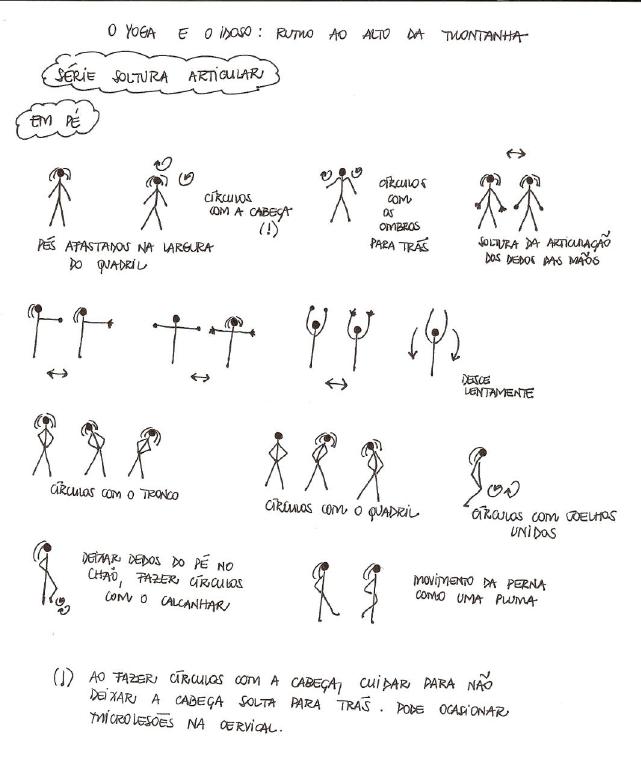 O YOGA E O IDOSO: RUMO AO ALTO DA MONTANHA
SÉRIE SOLTURA ARTICULAR
EM PÉ
PÉS AFASTADOS NA LARGURA
DO QUADRIL
CÍRCULOS
COM A CABEÇA
(!)
CÍRCULOS
COM
OS
OMBROS
PARA TRÁS
SOLTURA DA ARTICULAÇÃO
DOS DEDOS DAS MÃOS
DESCE
LENTAMENTE
CÍRCULOS COM O TRONCO
CÍRCULOS COM O QUADRIL
CÍRCULOS COM JOELHOS
UNIDOS
DEIXAR DEDOS DO PÉ NO
CHÃO, FAZER CÍRCULOS
COM O CALCANHAR
MOVIMENTO DA PERNA
COMO UMA PLUMA
(!) AO FAZER CÍRCULOS COM A CABEÇA, CUIDAR PARA NÃO
DEIXAR A CABEÇA SOLTA PARA TRÁS. PODE OCASIONAR
MICROLESÕES NA CERVICAL.